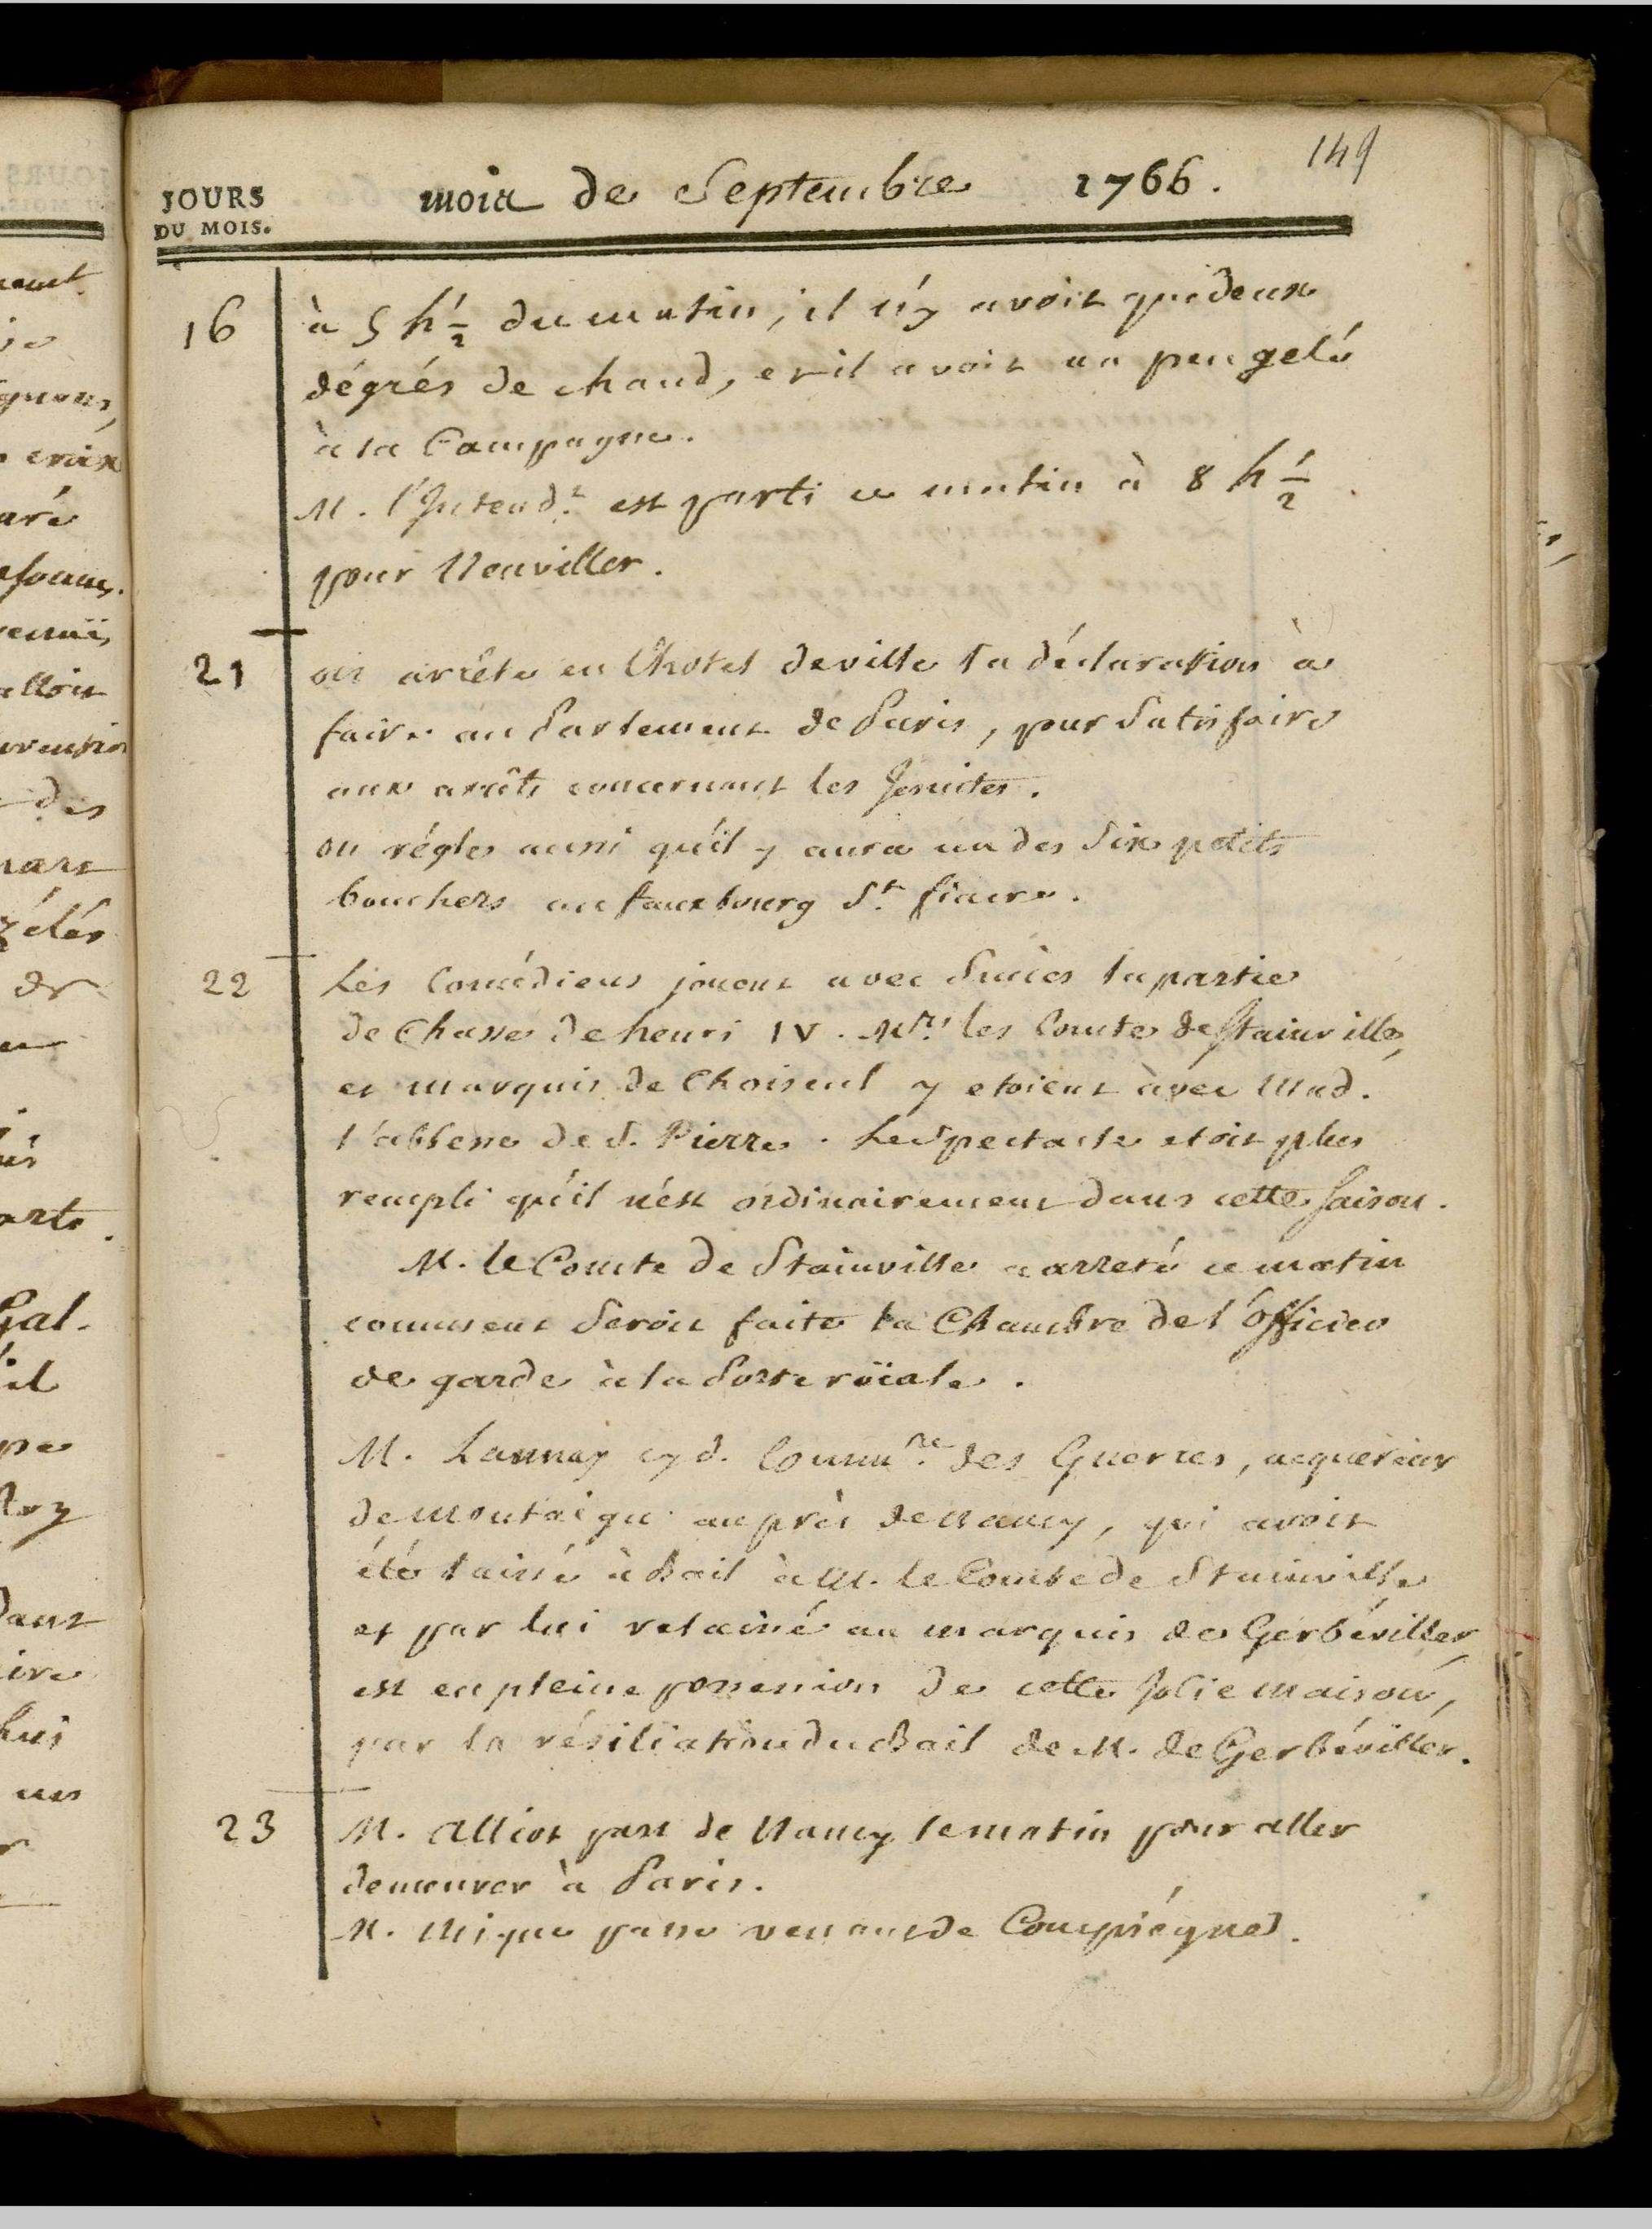 149
JOURS
DU MOIS.
mois de Septembre 1766.
16 à 5 h ½ du matin, il n'y avoit que deux
dégrés de chaud, et il avoit un peu gelé
à la Campagne.
M. l'Intend.t est parti ce matin à 8 h ½
pour Neuviller.
21 on arrête en l'hotel de ville la déclaration à
faire au Parlement de Paris, pour Satisfaire
aux arrêts concernant les Jesuites.
on régle aussi qu'il y aura un des Six petits
bouchers au fauxbourg S.t fiacre.
22 Les Comédiens jouent avec Succès la partie
de Chasse de henri IV. M.rs les Comte de Stainville,
et marquis de Choiseul y etoient avec Mad.
l'abbesse de S. Pierre. Le Spectacle etoit plus
rempli qu'il n'est ordinairement dans cette saison.
M. le Comte de Stainville a arreté ce matin
comment Seroit faite la Chambre de l'officier
de garde à la Porte roïale.
M. Launay cyd. Comm.re des Guerres, acquereur
de Montaigu auprès de Nancy, qui avoit
été laissé à Bail à M. le Comte de Stainville
et par lui relaissé au marquis de Gerbéviller,
est en pleine possession de cette jolie maison,
par la résiliation du Bail de M. de Gerbéviller.
23 M. Alliot part de Nancy le matin pour aller
demeurer à Paris.
M. Mique passe venant de Compiégne.